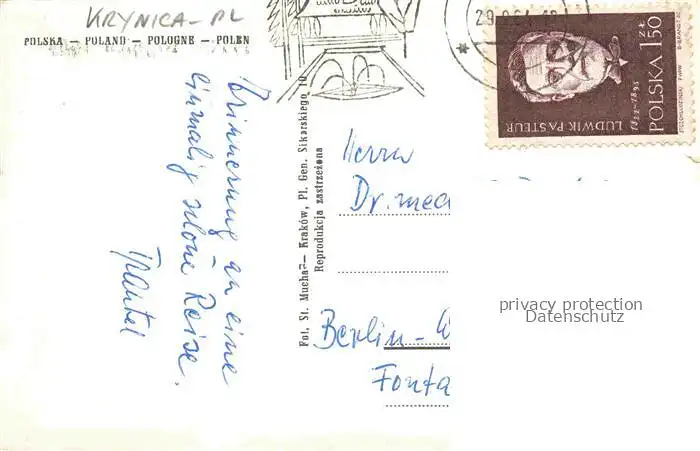 KRYNICA-PL
POLSKA — POLAND — POLOGNE — POLEN
Erinnerung an eine
einmalig schöne Reise.
Fot. St. Mucha — Kraków, Pl. Gen. Sikorskiego 10
Reprodukcja zastrzeżona
Herrn
Dr. med
Berlin - W
Fonta
1822-1895
LUDWIK PASTEUR
POLSKA 1 50
ZŁ
privacy protection
Datenschutz